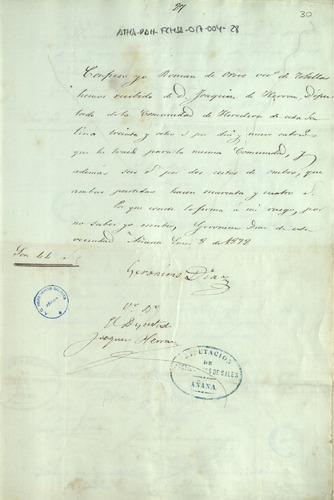 27
30
ATHA-DAH-FCHSA-017-004-28
Confieso yo Roman de vec.º de
hemos recibido de D. Joaquin de Herran Dipu
tado de la Comunidad de Herederos de esta Sa
lina treinta y ocho r.s por diez y nueve
que he traido para la misma Comunidad, y
ademas seis r.s por dos cestos de que
ambas partidas hacen cuarenta y cuatro r.s
Por que conste la firma á mi ruego, por
no saber yo escribir, Geronimo Diaz de esta
vecindad. Añana Enero 8 de 1878
Son 44 r.s
Geronimo Diaz
V.º B.º
El Diputado
Joaquin Herran
DIPUTACION
DE
DE SALES
AÑANA